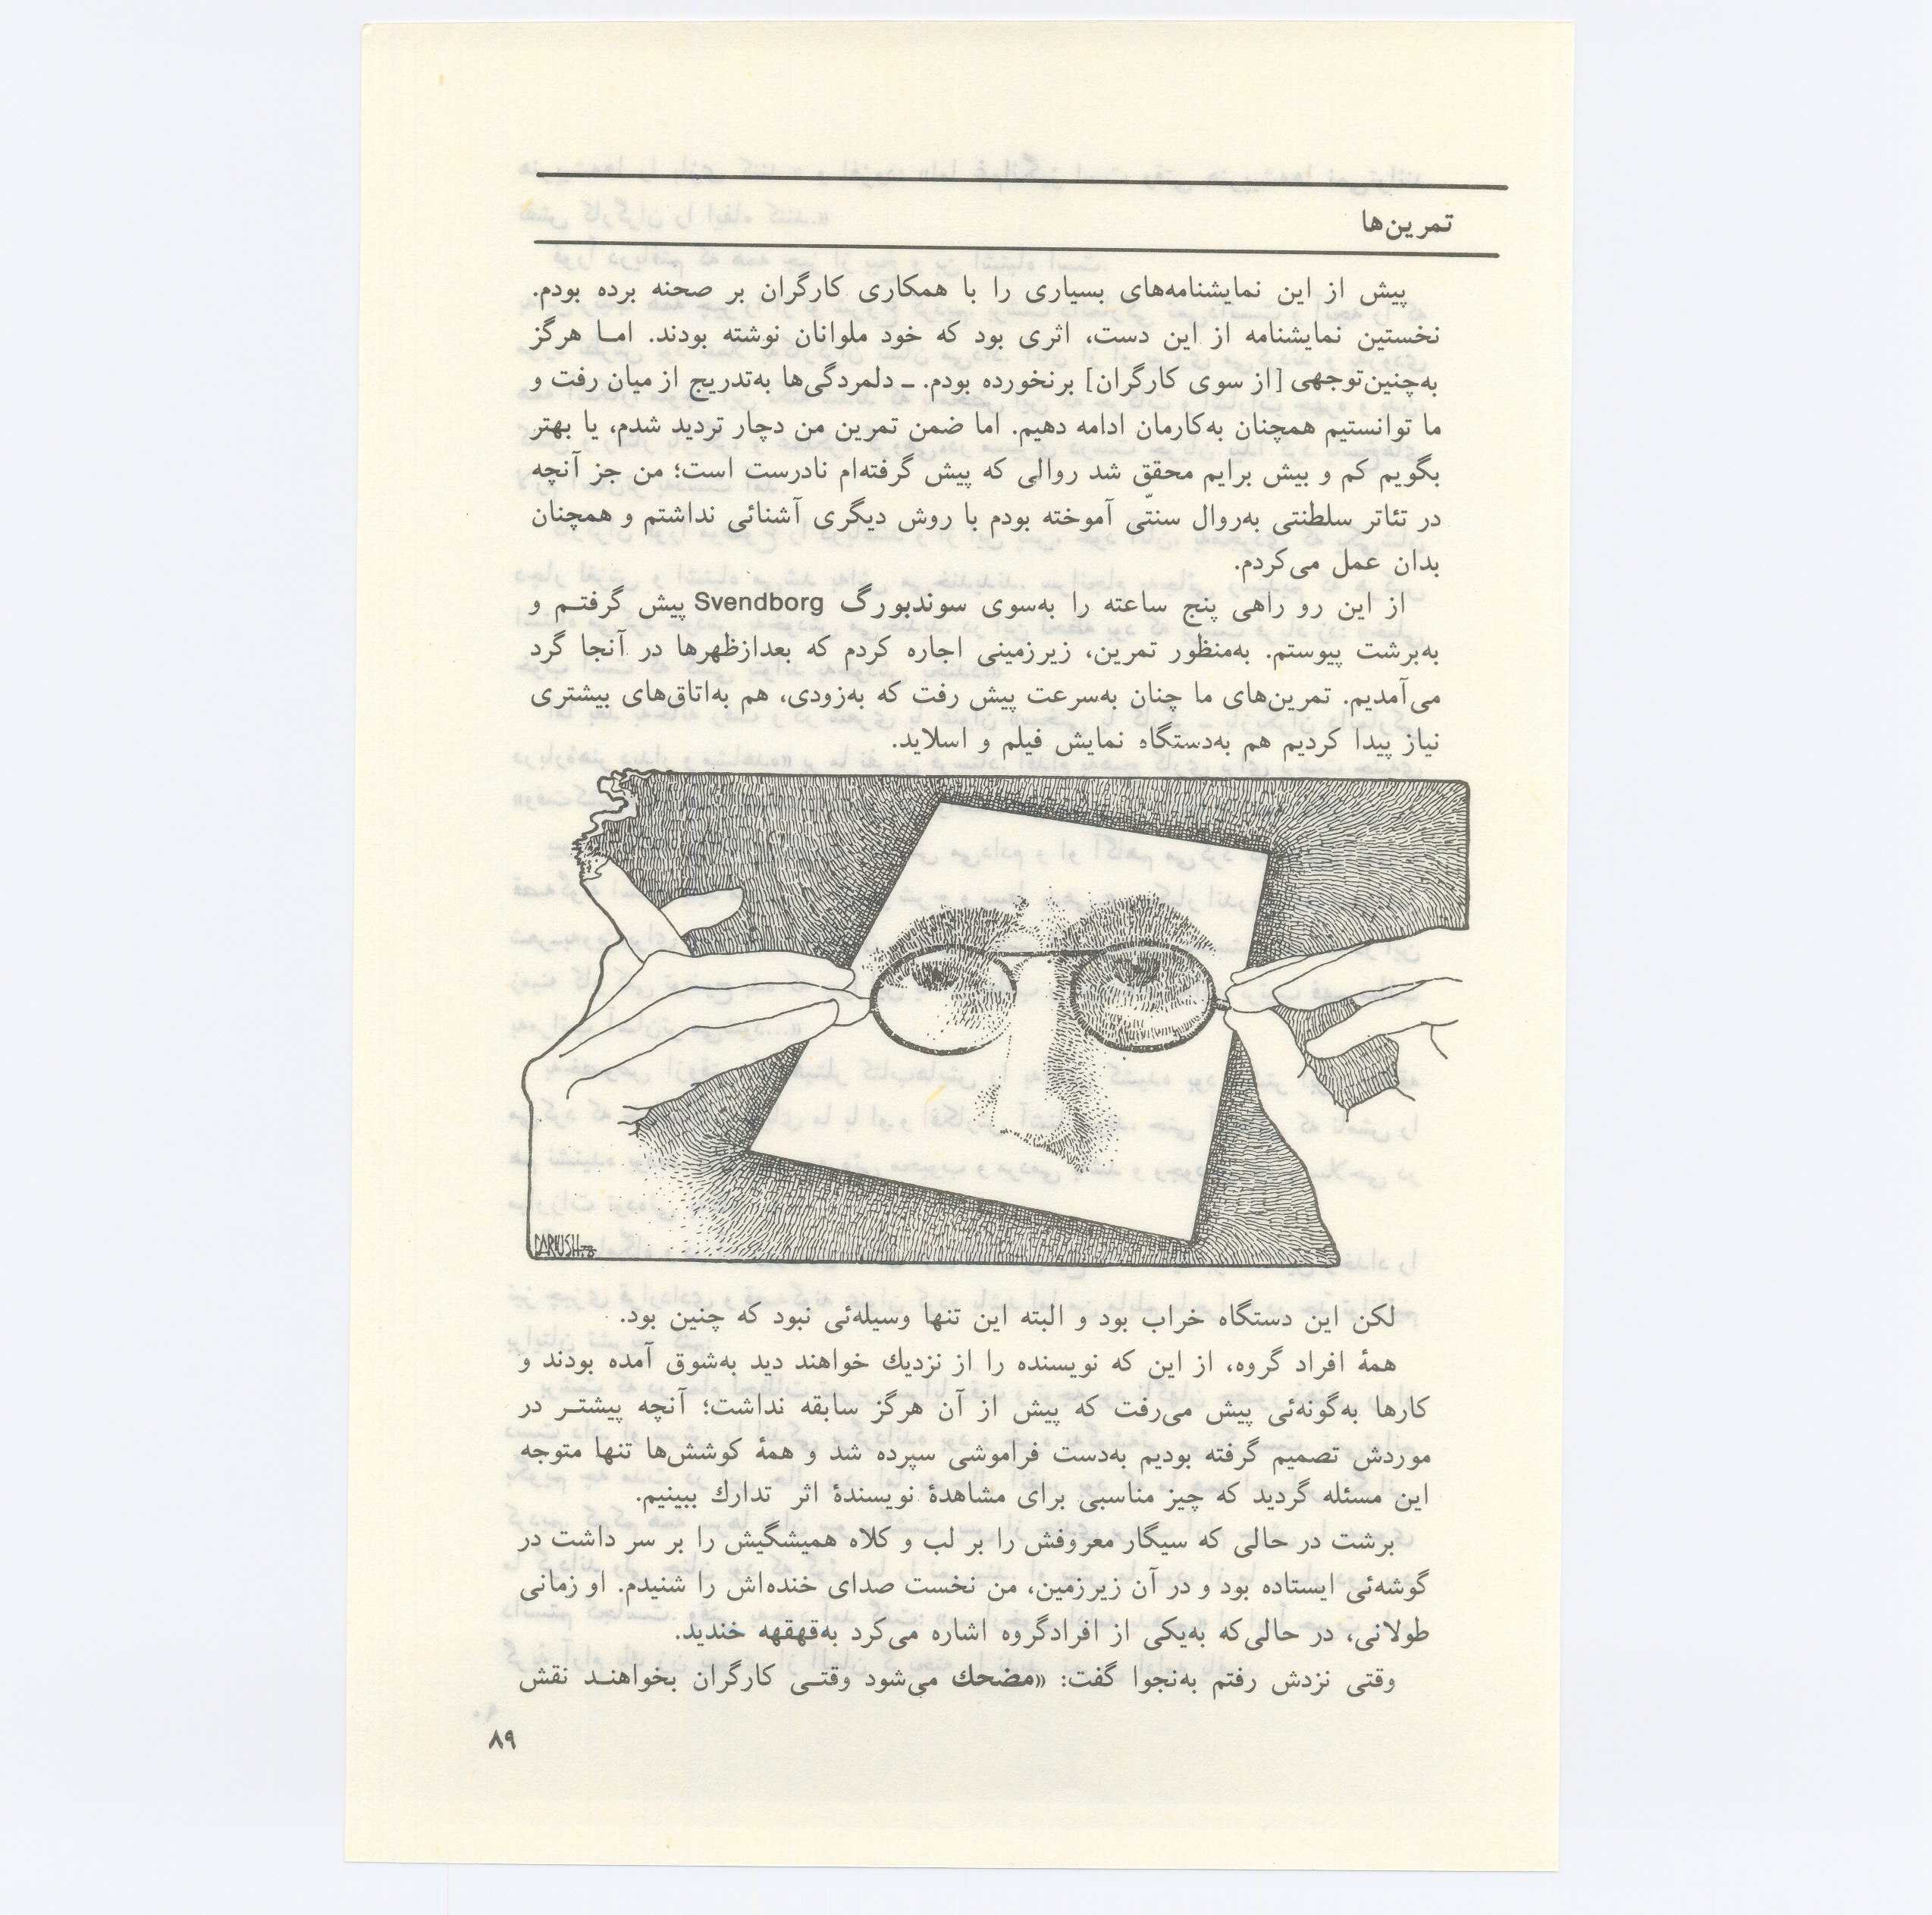 تمرین‌ها
پیش از این نمایشنامه‌های بسیاری را با همکاری کارگران بر صحنه برده بودم.
نخستین نمایشنامه از این دست، اثری بود که خود ملوانان نوشته بودند. امـا هرگز
به‌چنین‌توجهی [از سوی کارگران] برنخورده بودم. ـ دلمردگی‌ها به‌تدریج از میان رفت و
ما توانستیم همچنان به‌کارمان ادامه دهیم. اما ضمن تمرین من دچار تردید شدم، یا بهتر
بگویم کم و بیش برایم محقق شد روالی که پیش گرفته‌ام نادرست است؛ من جز آنچه
در تئاتر سلطنتی به‌روال سنتّی آموخته بودم با روش دیگری آشنائی نداشتم و همچنان
بدان عمل می‌کردم.
از این رو راهی پنج ساعته را به‌سوی سوندبورگ Svendborg پیش گرفتـم و
به‌برشت پیوستم. به‌منظور تمرین، زیرزمینی اجاره کردم که بعدازظهرها در آنجا گرد
می‌آمدیم. تمرین‌های ما چنان به‌سرعت پیش رفت که به‌زودی، هم به‌اتاق‌های بیشتری
نیاز پیدا کردیم هم به‌دستگاه نمایش فیلم و اسلاید.
DARIUSH.78
لکن این دستگاه خراب بود و البته این تنها وسیله‌ئی نبود که چنین بود.
همهٔ افراد گروه، از این که نویسنده را از نزدیك خواهند دید به‌شوق آمده بودند و
کارها به‌گونه‌ئی پیش می‌رفت که پیش از آن هرگز سابقه نداشت؛ آنچه پیشتـر در
موردش تصمیم گرفته بودیم به‌دست فراموشی سپرده شد و همهٔ کوشش‌ها تنها متوجه
این مسئله گردید که چیز مناسبی برای مشاهدهٔ نویسندهٔ اثر تدارك ببینیم.
برشت در حالی که سیگار معروفش را بر لب و کلاه همیشگیش را بر سر داشت در
گوشه‌ئی ایستاده بود و در آن زیرزمین، من نخست صدای خنده‌اش را شنیدم. او زمانی
طولانی، در حالی‌که به‌یکی از افرادگروه اشاره می‌کرد به‌قهقهه خندید.
وقتی نزدش رفتم به‌نجوا گفت: «مضحك می‌شود وقتـی کارگران بخواهنـد نقش
۸۹